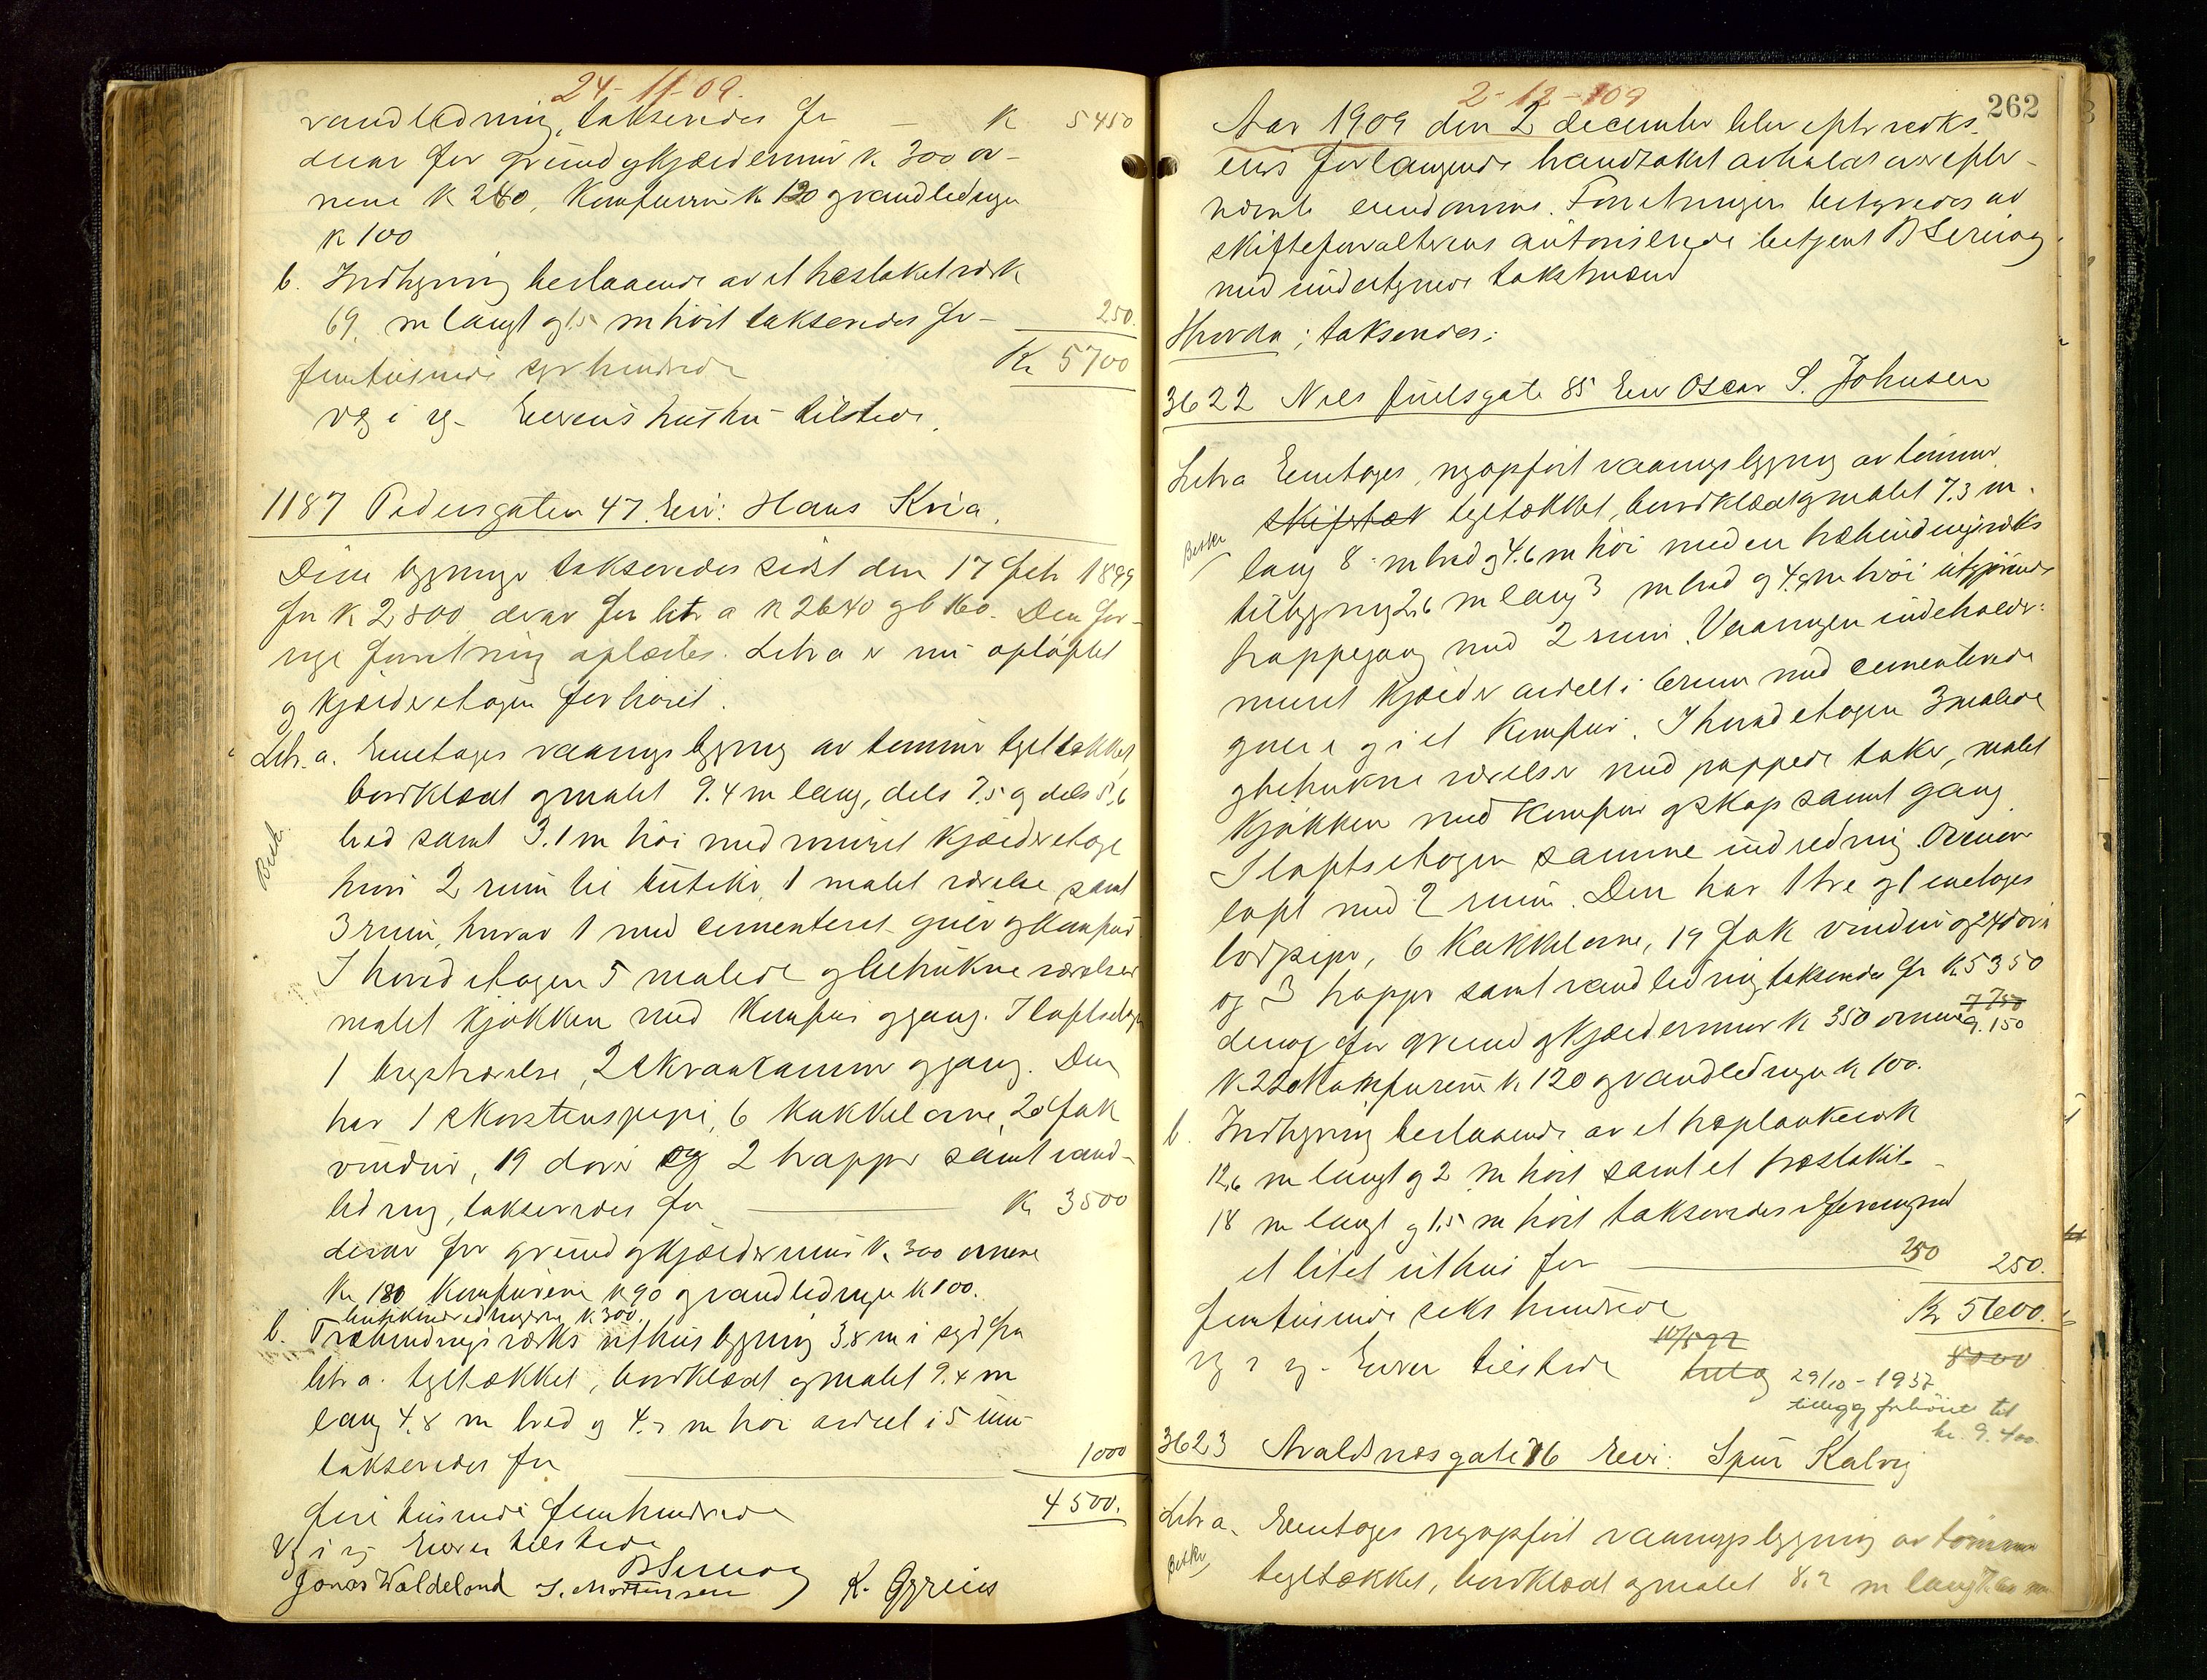 24-11-09.
vandledning, takseredes for — K 5450
derav for grund og kjældermur K. 300 ov-
nene K 240, Komfurene K 120 og vandledningen
K 100
b. Indhegning bestaaende av et træstaketværk
69. m langt og 1.5 m høit takseredes for — 250.
femtusinde syv hundrede K 5700
Eierens hustru tilstede.
1187 Pedersgaten 47. Eier: Hans Kvia.
Disse bygninger takseredes sidst den 17 febr 1899
for K 2,800 derav for litr a K 2640 og b 160. Den for-
rige forretning oplæstes. Litr a er nu opløftet
og kjælderetagen forhøiet.
Litr. a. Enetages vaaningsbygning av tømmer tegltækket,
bordklædt og malet 9.4 m lang, dels 7.5 og dels 5.6
bred samt 3.1 m høi med muret kjælderetage
hvori 2 rum til butiker, 1 malet værelse samt
3 rum, hvorav 1 med cementeret gulv og komfur.
I hovedetagen 5 malede og betrukne værelser
malet kjøkken med komfur og gang. I loftsetagen
1 bryströrelse, 2 skraakammer og gang. Den
har 1 skorstenspipe, 6 kakkelovne, 20 fak
vinduer, 19 dører og 2 trapper samt vand-
ledning, takseredes for — K 3500
derav for grund og kjældermur K. 300 ovnene
K. 180 komfurene K 90 og vandledningen K 100.
butikindredningerne K 300.
b. Træbindingsværks uthusbygning 3.8 m i syd fra
litr a. tegltækket, bordklædt og malet 9.4 m
lang 4.8 m bred og 4.2 m høi avdelt i 5 rum
takseredes for — 1000
fire tusinde femhundrede 4500.
Eieren tilstede
Jonas Waldeland S. Mortensen K. Gjerius
2-12-109
262
Aar 1909 den 2 december blev efter rekv.
ens forlangende brandtakst avholdt over efter-
nævnte eiendomme. Forretningen bestyredes av
skifteforvalterens autoriserede betjent
med undertegnede takstmænd
Hvorda; takseredes:
3622 Niels Juelsgate 85 Eier Oscar S. Johnsen
Litr a Enetages, nyopført vaaningsbygning av tømmer,
skifertæk tegltækket, bordklædt og malet 7.3 m
Beskr
lang 8 m bred og 4.6 m høi med en træbindingsværks
tilbygning 2.6 m lang 3 m bred og 4.9 m høi utgjørende
trappegang med 2 rum. Vaaningen indeholder:
muret kjælder avdelt i 6 rum med cementerede
gulve og i et komfur. I hovedetagen 3 malede
og betrukne værelser med pappede taker, malet
kjøkken med komfur og skap samt gang.
I loftsetagen samme indredning. Overover
loft med 2 rum. Den har 1 tre og 1 enetages
lodpiper, 6 kakkelovne, 19 fak vinduer og 24 dører
og 3 trapper samt vandledning takseredes for K. 5350
7750
9.150
derav for grund og kjældermur K 350 ovnene
K. 220 komfurene K 120 og vandledningen K 100.
b. Indhegning bestaaende av et træplankeværk
12.6 m langt og 2 m høit samt et træstakit-
18 m langt og 1.5 m høit takseredes i forening med
et litet uthus for — 250 250.
femtusinde seks hundrede K 5600.
Eieren tilstede 8000
29/10-1937
tillegg forhöiet til
kr. 9.400.
3623 Avaldsnesgate 16 Eier: Kalvig
Litr a. Enetages nyopført vaaningsbygning av tømmer
Beskr
tegltækket, bordklædt og malet 8.2 m lang